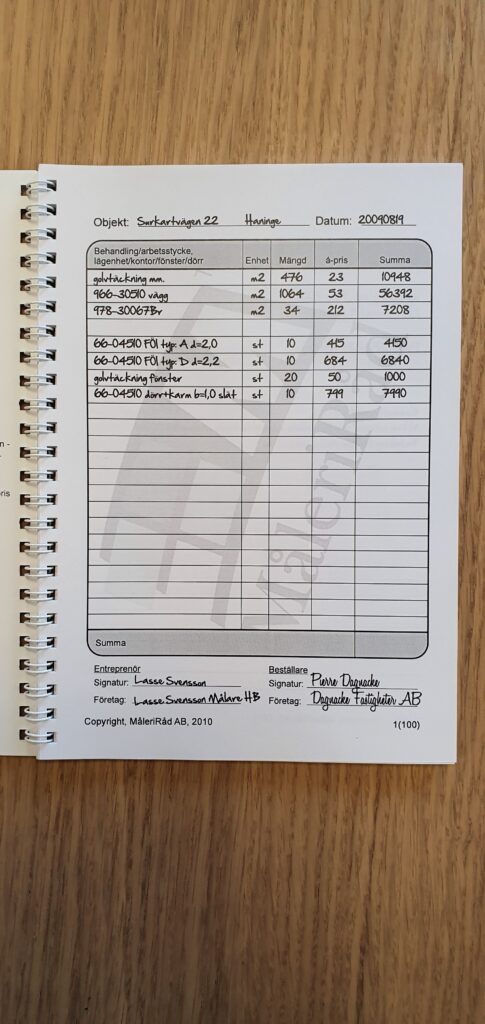 Objekt: Surkartvägen 22 Haninge Datum: 20090819
Behandling/arbetsstycke,
lägenhet/kontor/fönster/dörr Enhet Mängd á-pris Summa
golvtäckning mm. m2 476 23 10948
966-30510 vägg m2 1064 53 56392
978-30067Br m2 34 212 7208
66-04510 FÖI typ: A d=2,0 st 10 415 4150
66-04510 FÖI typ: D d=2,2 st 10 684 6840
golvtäckning fönster st 20 50 1000
66-04510 dörr+karm b=1,0 slät st 10 799 7990
MåleriRåd
Summa
Entreprenör Beställare
Signatur: Lasse Svensson Signatur: Pierre Dagnacke
Företag: Lasse Svensson Målare HB Företag: Dagnacke Fastigheter AB
Copyright, MåleriRåd AB, 2010 1(100)
ris